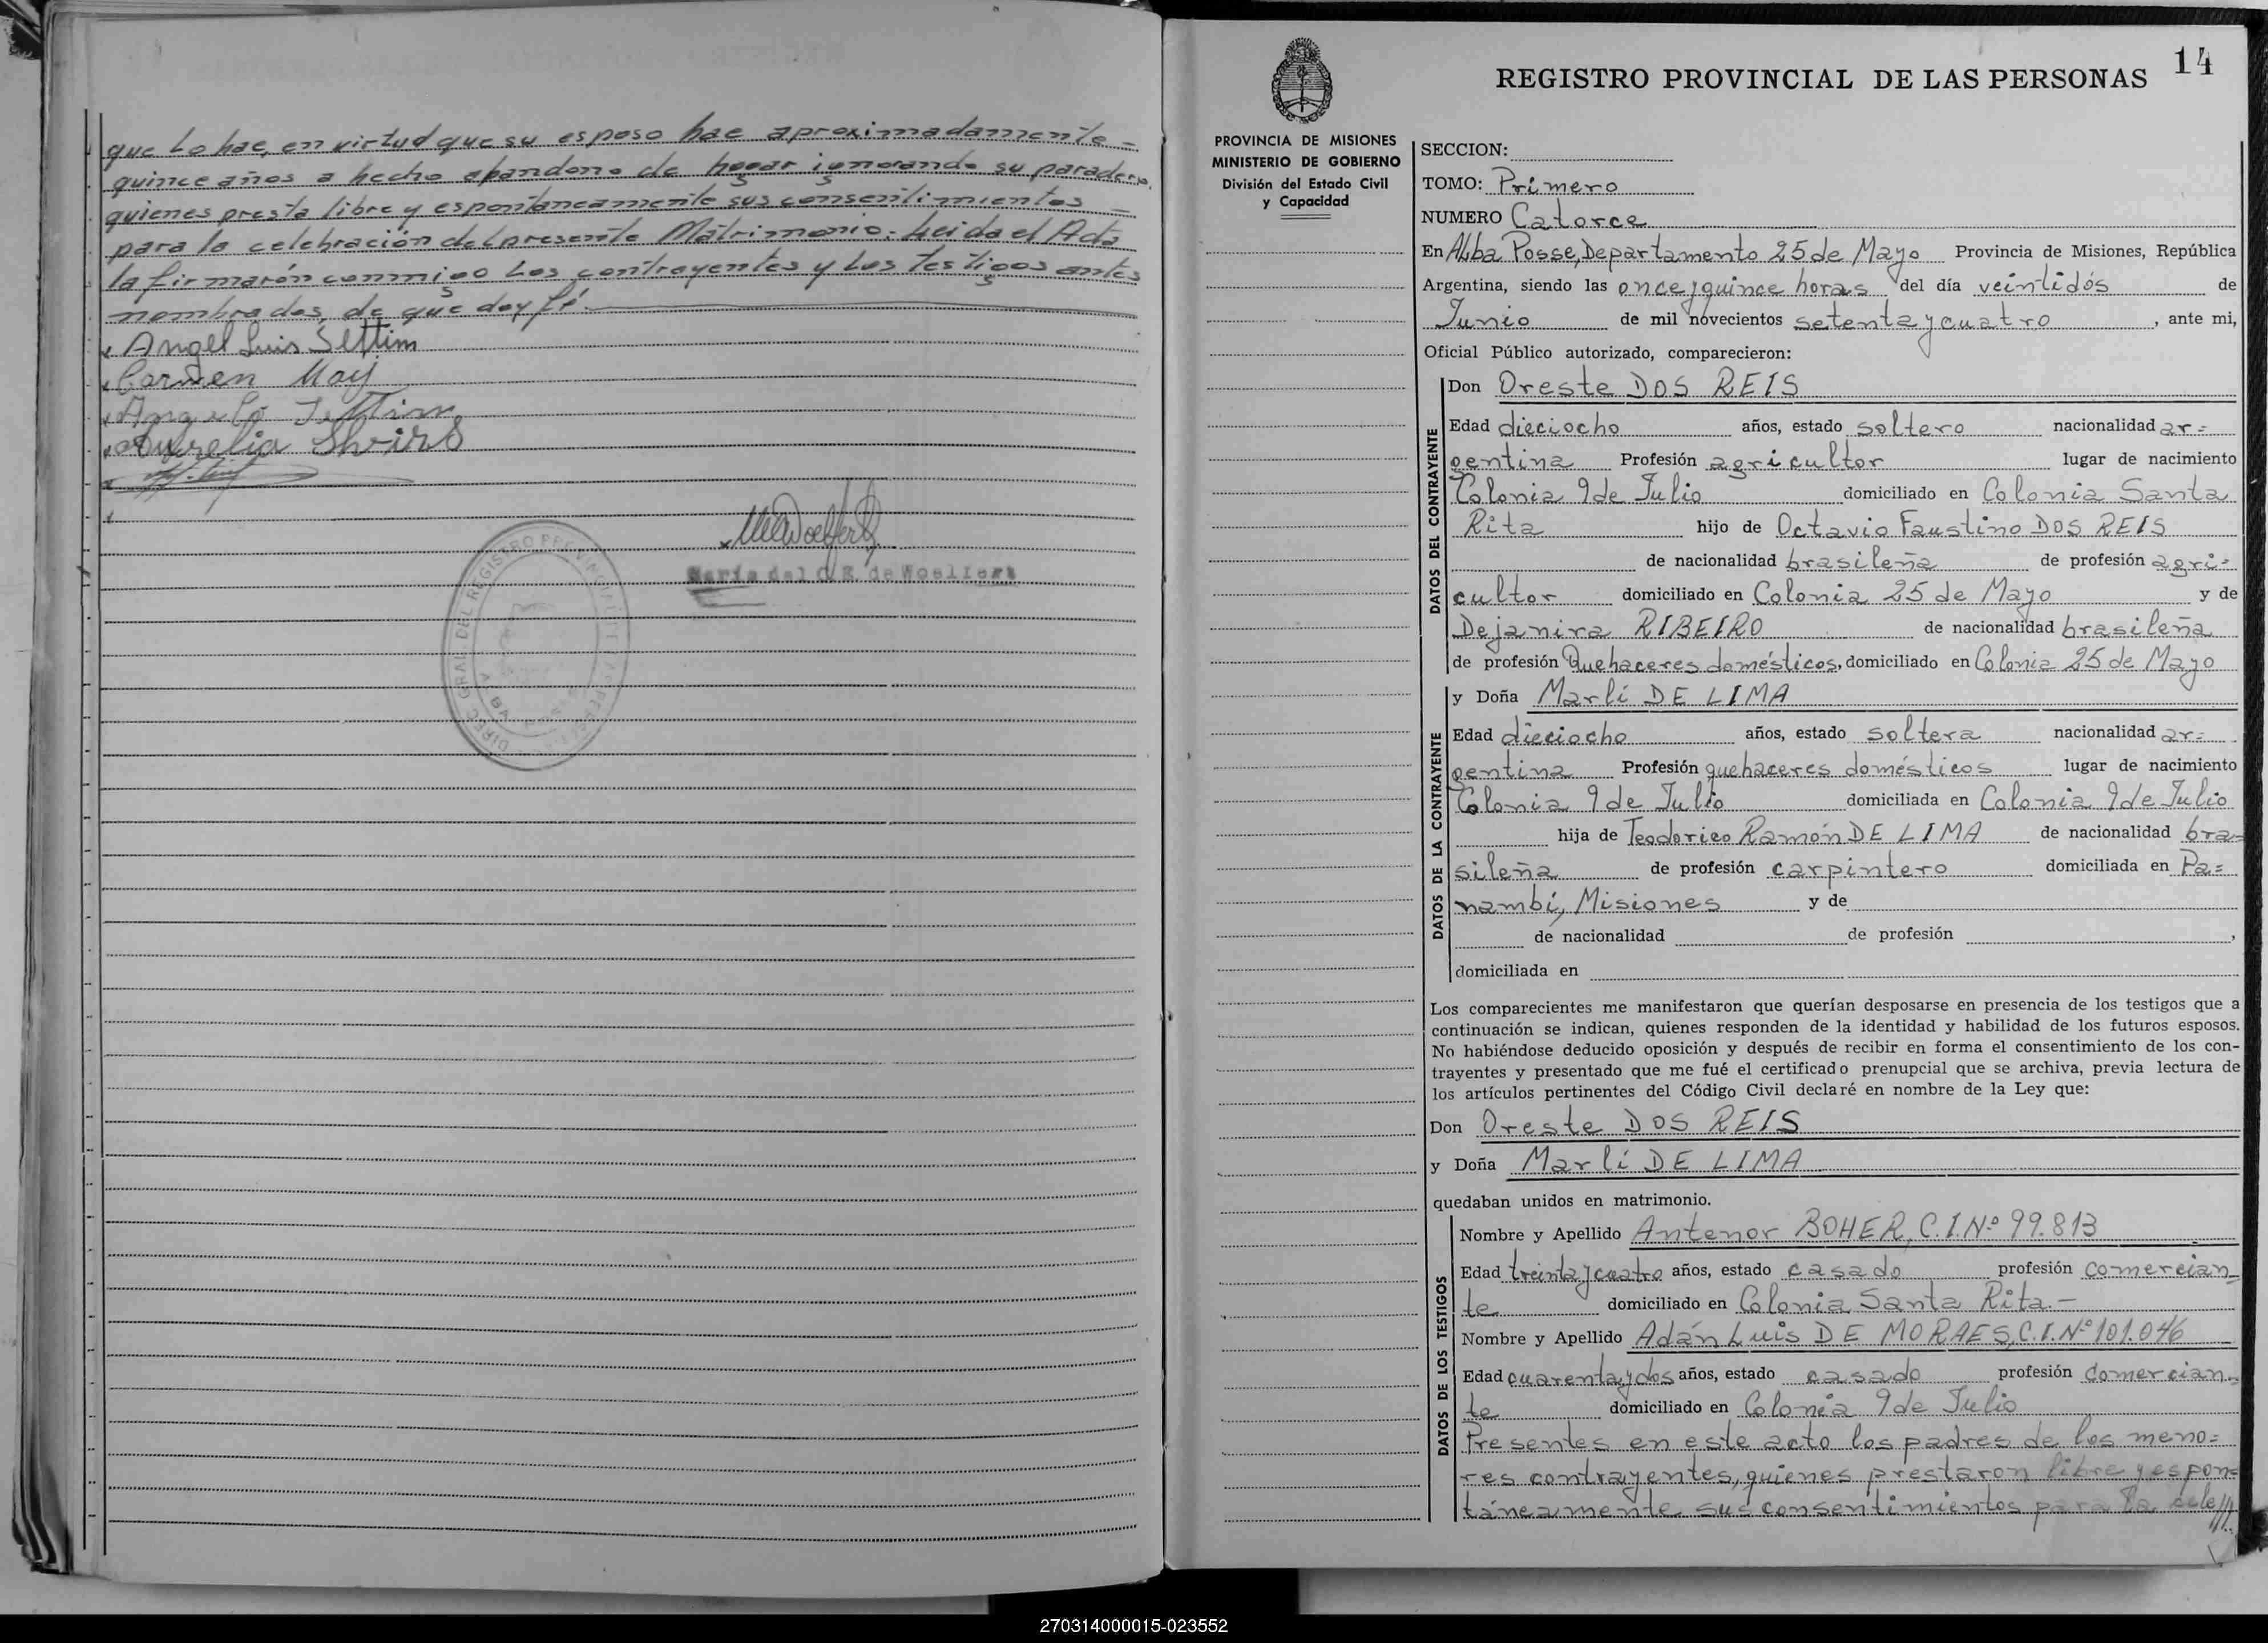 que lo hae, en virtud que su esposo hae aproximadamente -
quince años a hecho abandono de hogar ignorando su paradero,
quienes presta libre y espontaneamente sus consentimientos -
para la celebración del presente Matrimonio. Leida el Acta
la firmarón conmigo los contrayentes y los testigos antes
nombrados, de que doy fé.
Angel Luis Settim
Carmen
Angelo Settim
María del C.R. de Woelfert
DIREC. GRAL. DEL REGISTRO PROVINCIAL DE LAS PERSONAS
ALBA POSSE
14
REGISTRO PROVINCIAL DE LAS PERSONAS
PROVINCIA DE MISIONES
MINISTERIO DE GOBIERNO
División del Estado Civil
y Capacidad
SECCION:
TOMO: Primero
NUMERO Catorce
En Alba Posse, Departamento 25 de Mayo Provincia de Misiones, República
Argentina, siendo las once y quince horas del día veintidós de
Junio de mil novecientos setenta y cuatro, ante mi,
Oficial Público autorizado, comparecieron:
DATOS DEL CONTRAYENTE
Don Oreste DOS REIS
Edad dieciocho años, estado soltero nacionalidad ar=
gentina Profesión agricultor lugar de nacimiento
Colonia 9 de Julio domiciliado en Colonia Santa
Rita hijo de Octavio Faustino DOS REIS
de nacionalidad brasileña de profesión agri=
cultor domiciliado en Colonia 25 de Mayo y de
Dejanira RIBEIRO de nacionalidad brasileña
de profesión Quehaceres domésticos, domiciliado en Colonia 25 de Mayo
DATOS DE LA CONTRAYENTE
y Doña Marli DE LIMA
Edad dieciocho años, estado soltera nacionalidad ar=
gentina Profesión quehaceres domésticos lugar de nacimiento
Colonia 9 de Julio domiciliada en Colonia 9 de Julio
hija de Teodorico Ramón DE LIMA de nacionalidad bra=
sileña de profesión carpintero domiciliada en Pa=
nambí, Misiones y de
de nacionalidad de profesión ,
domiciliada en
Los comparecientes me manifestaron que querían desposarse en presencia de los testigos que a
continuación se indican, quienes responden de la identidad y habilidad de los futuros esposos.
No habiéndose deducido oposición y después de recibir en forma el consentimiento de los con-
trayentes y presentado que me fué el certificado prenupcial que se archiva, previa lectura de
los artículos pertinentes del Código Civil declaré en nombre de la Ley que:
Don Oreste DOS REIS
y Doña Marli DE LIMA
quedaban unidos en matrimonio.
DATOS DE LOS TESTIGOS
Nombre y Apellido Antenor BOHER, C.I. Nº 99.813
Edad treinta y cuatro años, estado casado profesión comercian=
te domiciliado en Colonia Santa Rita.-
Nombre y Apellido Adán Luis DE MORAES, C.I. Nº 101.046
Edad cuarenta y dos años, estado casado profesión comercian=
te domiciliado en Colonia 9 de Julio
Presentes en este acto los padres de los meno=
res contrayentes, quienes prestaron libre y espon=
táneamente sus consentimientos para la cele///
270314000015-023552